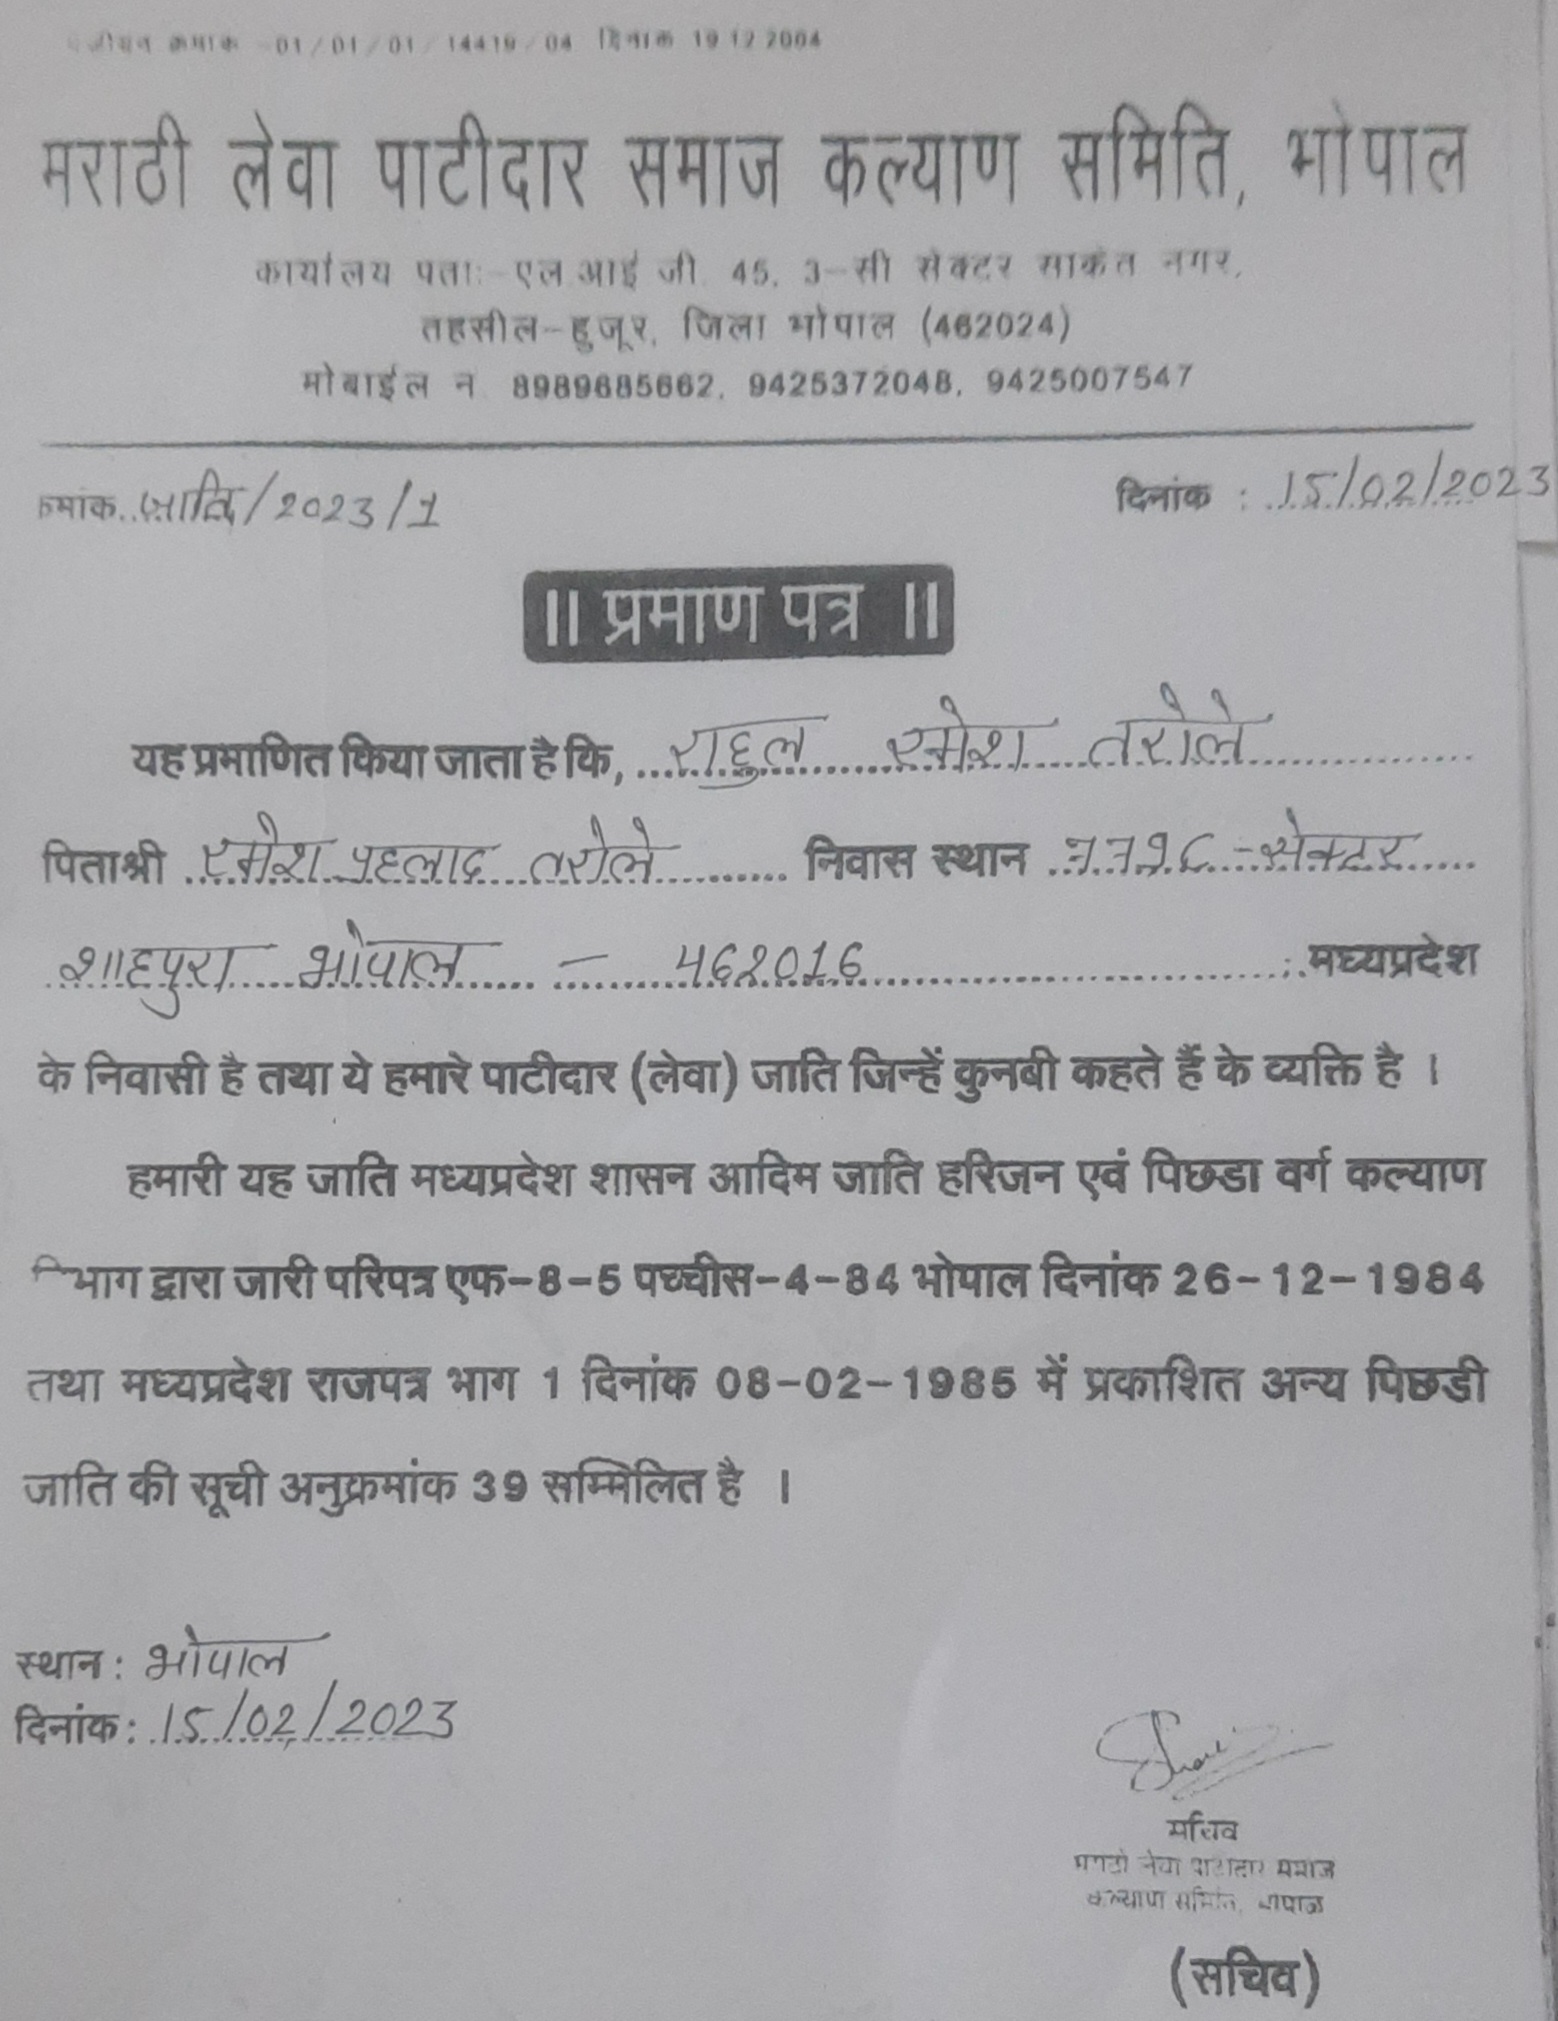 पंजीयन क्रमांक -01/01/01/14419/04 दिनांक 19 12 2004
मराठी लेवा पाटीदार समाज कल्याण समिति, भोपाल
कार्यालय पताः- एल.आई जी. 45, 3-सी सेक्टर साकेत नगर,
तहसील-हुजूर, जिला भोपाल (462024)
मोबाईल न. 8989685662, 9425372048, 9425007547
क्रमांक. जाति/2023/1 दिनांक : 15/02/2023
॥ प्रमाण पत्र ॥
यह प्रमाणित किया जाता है कि, राहुल रमेश तरोले
पिताश्री रमेश प्रहलाद तरोले निवास स्थान -सेक्टर
शाहपुरा भोपाल - 462016 मध्यप्रदेश
के निवासी है तथा ये हमारे पाटीदार (लेवा) जाति जिन्हें कुनबी कहते हैं के व्यक्ति है ।
हमारी यह जाति मध्यप्रदेश शासन आदिम जाति हरिजन एवं पिछडा वर्ग कल्याण
विभाग द्वारा जारी परिपत्र एफ-8-5 पच्चीस-4-84 भोपाल दिनांक 26-12-1984
तथा मध्यप्रदेश राजपत्र भाग 1 दिनांक 08-02-1985 में प्रकाशित अन्य पिछडी
जाति की सूची अनुक्रमांक 39 सम्मिलित है ।
स्थान : भोपाल
दिनांक : 15/02/2023
सचिव
मराठी लेवा पाटीदार समाज
कल्याण समिति, भोपाल
(सचिव)